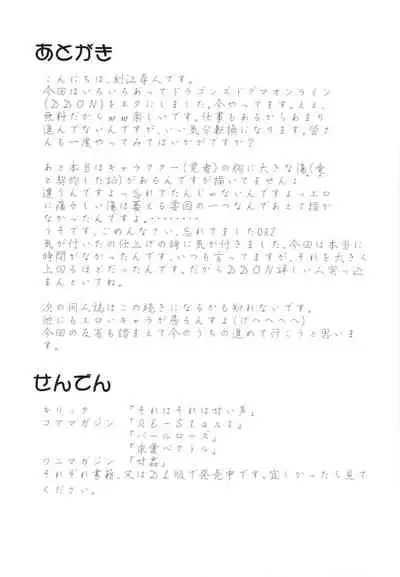 あとがき
こんにちは、刻江尋人です。
今回はいろいろあってドラゴンズドグマオンライン
(DDON)をネタにしました。今やってます。ええ、
無料だからｗｗ楽しいです。仕事もあるからあまり
進んでないんですが、いい気分転換になります。皆さ
んも一度やってみてはいかがですか？
あと本当はキャラクター(覚者)の胸に大きな傷(竜
と契約した証)があるんですが描いてません；
違うんですよっ忘れてたんじゃないんですよっエロ
に痛々しい傷は萎える要因の一つなんであえて描か
なかったんですよ。………
うそです。ごめんなさい、忘れてましたORZ
気が付いたの仕上げの時に気が付きました。今回は本当に
時間がなかったんです。いつも言ってますが、それを大きく
上回るほどだったんです。だからDDON詳しい人突っ込
まんといてね。
次の同人誌はこの続きになるかも知れないです。
他にもエロいキャラが居るんすよ(げへへへへ)
今回の反省も踏まえて今のうちの進めて行こうと思いま
す。
せんでん
キリック 「それはそれは甘い声」
コアマガジン 「Re-Start」
「パールローズ」
「求愛ベクトル」
ワニマガジン 「甘蟲」
それぞれ書籍、又はDL版で発売中です。宜しかったら見て
ください。